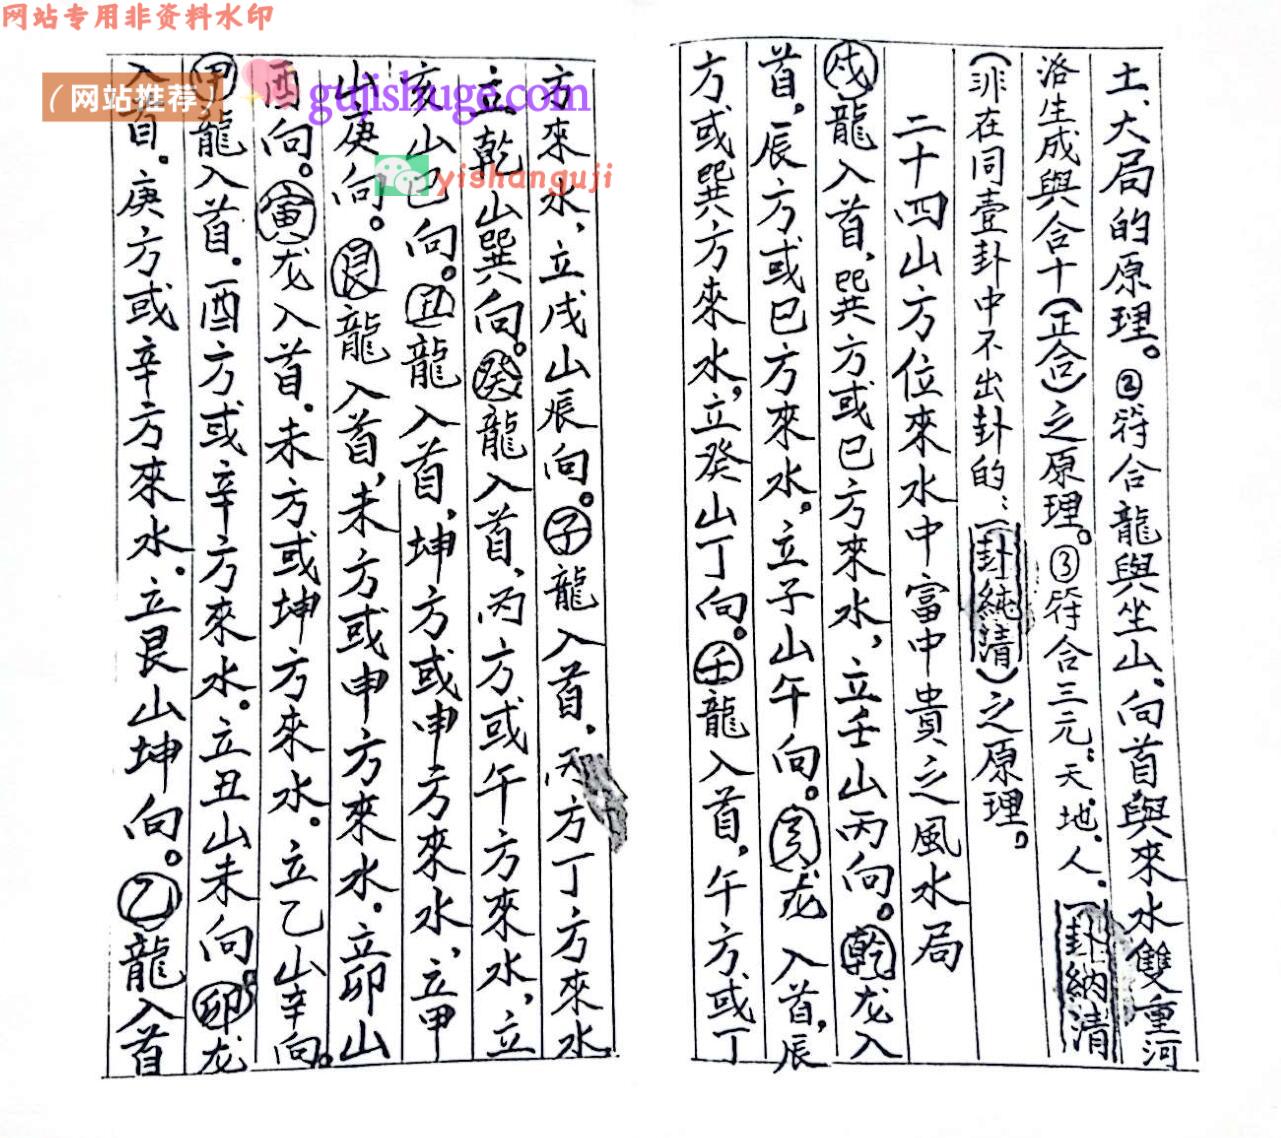 网站专用非资料水印
（网站推荐）
gujishuge.com
yishanguji
土、大局的原理。②符合龍與坐山、向首與來水雙重河
洛生成與合十(正合)之原理。③符合三元:天.地.人.一卦納清
(非在同壹卦中不出卦的:一卦純清)之原理。
二十四山方位來水中富中貴之風水局
戌龍入首,巽方或巳方來水,立壬山丙向。乾龙入
首。辰方或巳方來水。立子山午向。亥龙入首,辰
方或巽方來水,立癸山丁向。壬龍入首,午方或丁
方來水,立戌山辰向。子龍入首.方丁方來水
立乾山巽向。癸龍入首,丙方或午方來水,立
亥山巳向。丑龍入首,坤方或申方來水,立甲
山庚向。艮龍入首,未方或申方來水.立卯山
酉向。寅龙入首.未方或坤方來水。立乙山辛向。
甲龍入首.酉方或辛方來水。立丑山未向。卯龙
入首。庚方或辛方來水.立艮山坤向。乙龍入首